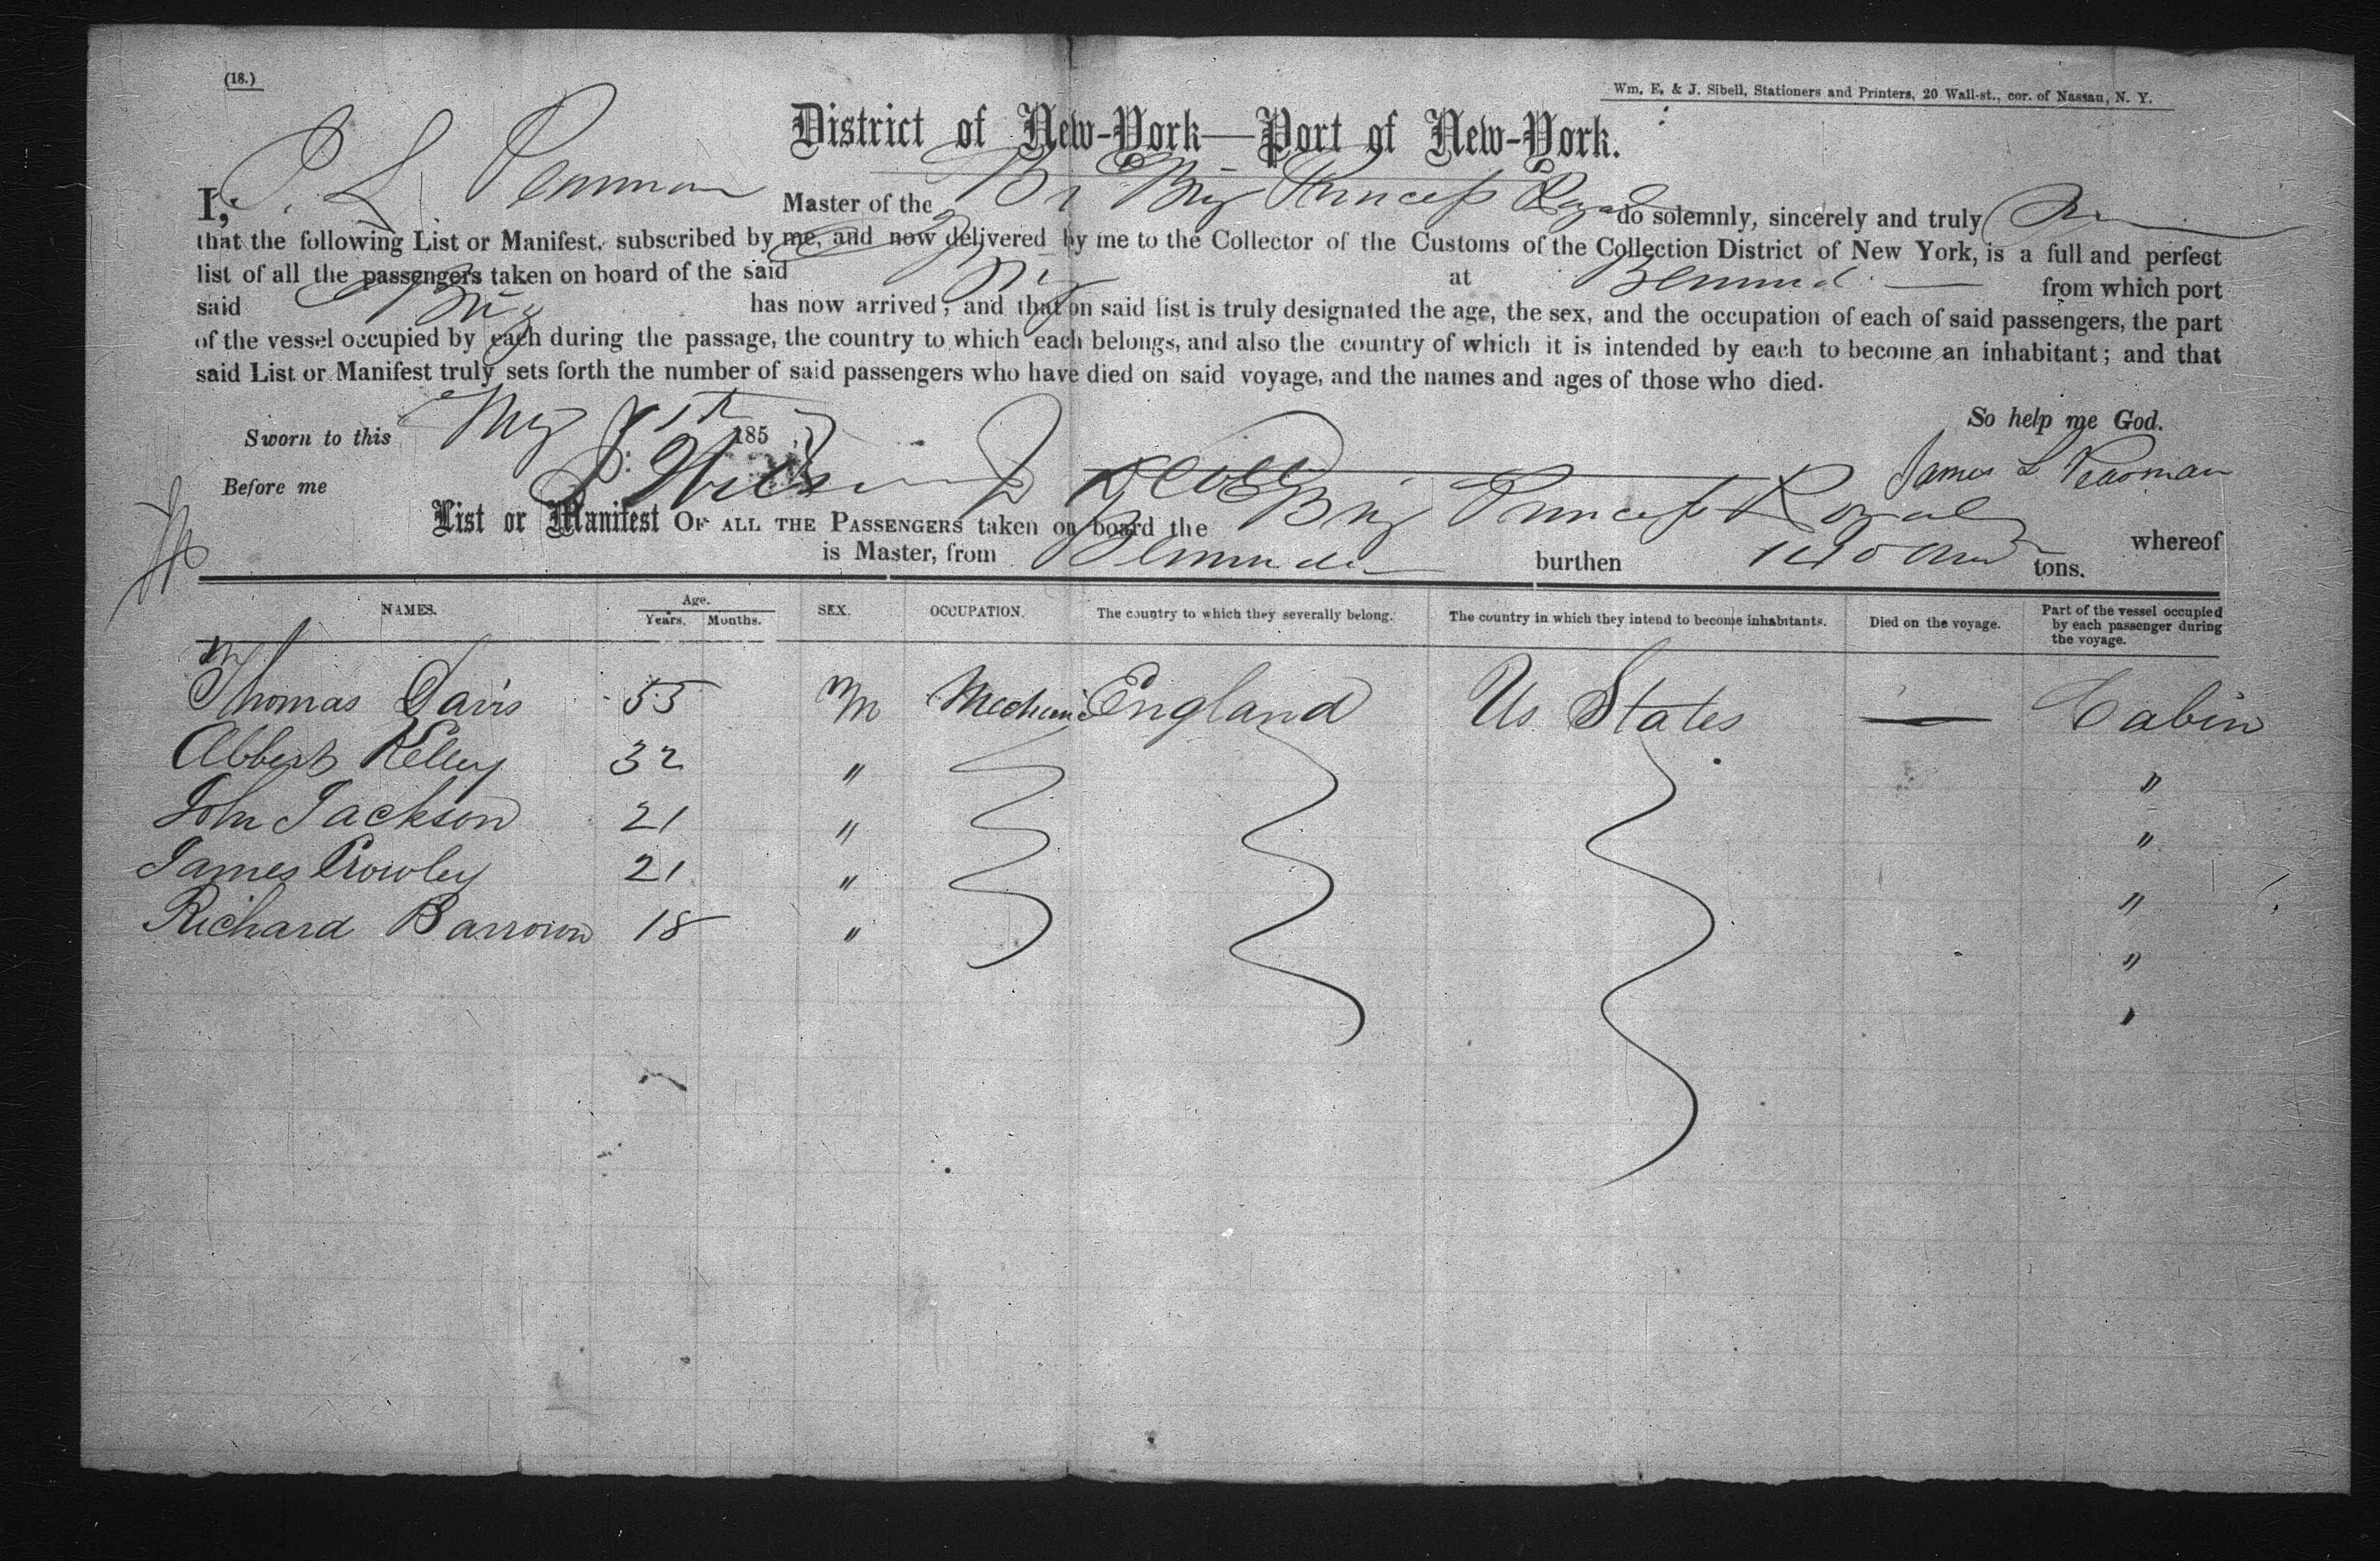 (18.)
Wm. E. & J. Sibell, Stationers and Printers, 20 Wall-st., cor. of Nassau, N. Y.
District of New-York—Port of New-York.
I, J. L. Pearman Master of the Br Brig Princess Royal do solemnly, sincerely and truly
that the following List or Manifest, subscribed by me, and now delivered by me to the Collector of the Customs of the Collection District of New York, is a full and perfect
list of all the passengers taken on board of the said Brig at Bermuda from which port
said Brig has now arrived; and that on said list is truly designated the age, the sex, and the occupation of each of said passengers, the part
of the vessel occupied by each during the passage, the country to which each belongs, and also the country of which it is intended by each to become an inhabitant; and that
said List or Manifest truly sets forth the number of said passengers who have died on said voyage, and the names and ages of those who died.
So help me God.
Sworn to this May 185
James L Pearman
Before me
List or Manifest OF ALL THE PASSENGERS taken on board the Brig Princess Royal whereof
is Master, from Bermuda burthen tons.
NAMES. Age. Years. Months. SEX. OCCUPATION. The country to which they severally belong. The country in which they intend to become inhabitants. Died on the voyage. Part of the vessel occupied by each passenger during the voyage.
Thomas Davis 55 M Mechanic England Us States — Cabin
Abbert Kelley 32 " "
John Jackson 21 " "
James Crowley 21 " "
Richard Barrown 18 " "